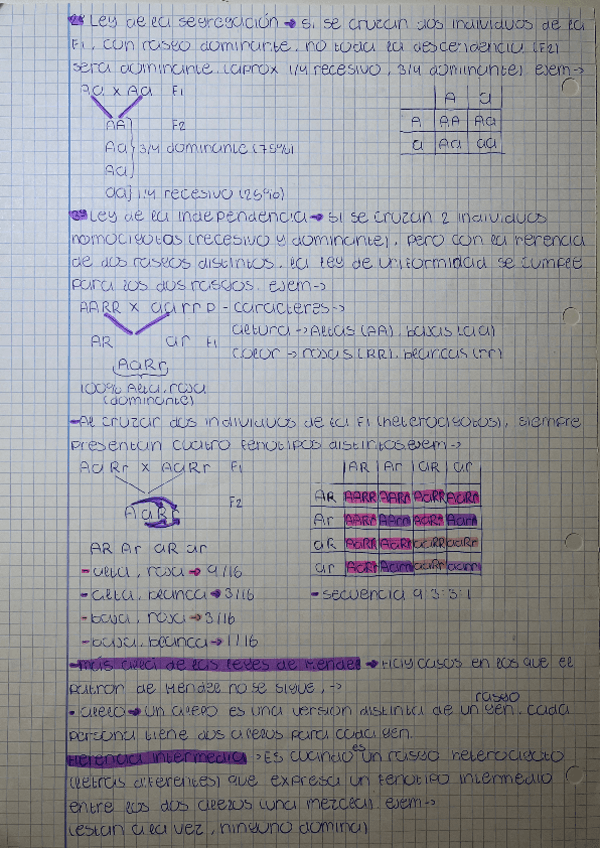 2ª Ley de la segregación → si se cruzan dos individuos de la
F1, con rasgo dominante, no toda la descendencia (F2)
será dominante. (aprox 1/4 recesivo, 3/4 dominante) ejem→
Aa x Aa F1
A a
AA F2
A AA Aa
Aa 3/4 dominante (75%)
a Aa aa
Aa
aa 1/4 recesivo (25%)
3ª Ley de la independencia → si se cruzan 2 individuos
homocigotos (recesivo y dominante), pero con la herencia
de dos rasgos distintos, la ley de uniformidad se cumple
para los dos rasgos. ejem→
AARR x aarr P - caracteres→
altura → Altas (AA), bajas (aa)
AR ar F1
color → rojas (RR), blancas (rr)
AaRr
100% Alta, roja
(dominante)
-Al cruzar dos individuos de la F1 (heterocigotos), siempre
presentan cuatro fenotipos distintos ejem→
AaRr x AaRr F1
AR Ar aR ar
AR AARR AARr AaRR AaRr
AaRr F2
Ar AARr AArr AaRr Aarr
aR AaRR AaRr aaRR aaRr
AR Ar aR ar
ar AaRr Aarr aaRr aarr
- alta, roja → 9/16
- alta, blanca → 3/16
- secuencia 9:3:3:1
- baja, roja → 3/16
- baja, blanca → 1/16
-más allá de las leyes de Mendel → Hay casos en los que el
patron de Mendel no se sigue, →
rasgo
· alelo → un alelo es una versión distinta de un gen. cada
persona tiene dos alelos para cada gen.
Herencia intermedia → Es cuando es un rasgo heterocigoto
(letras diferentes) que expresa un fenotipo intermedio
entre los dos alelos (una mezcla). ejem→
(están a la vez, ninguno domina)